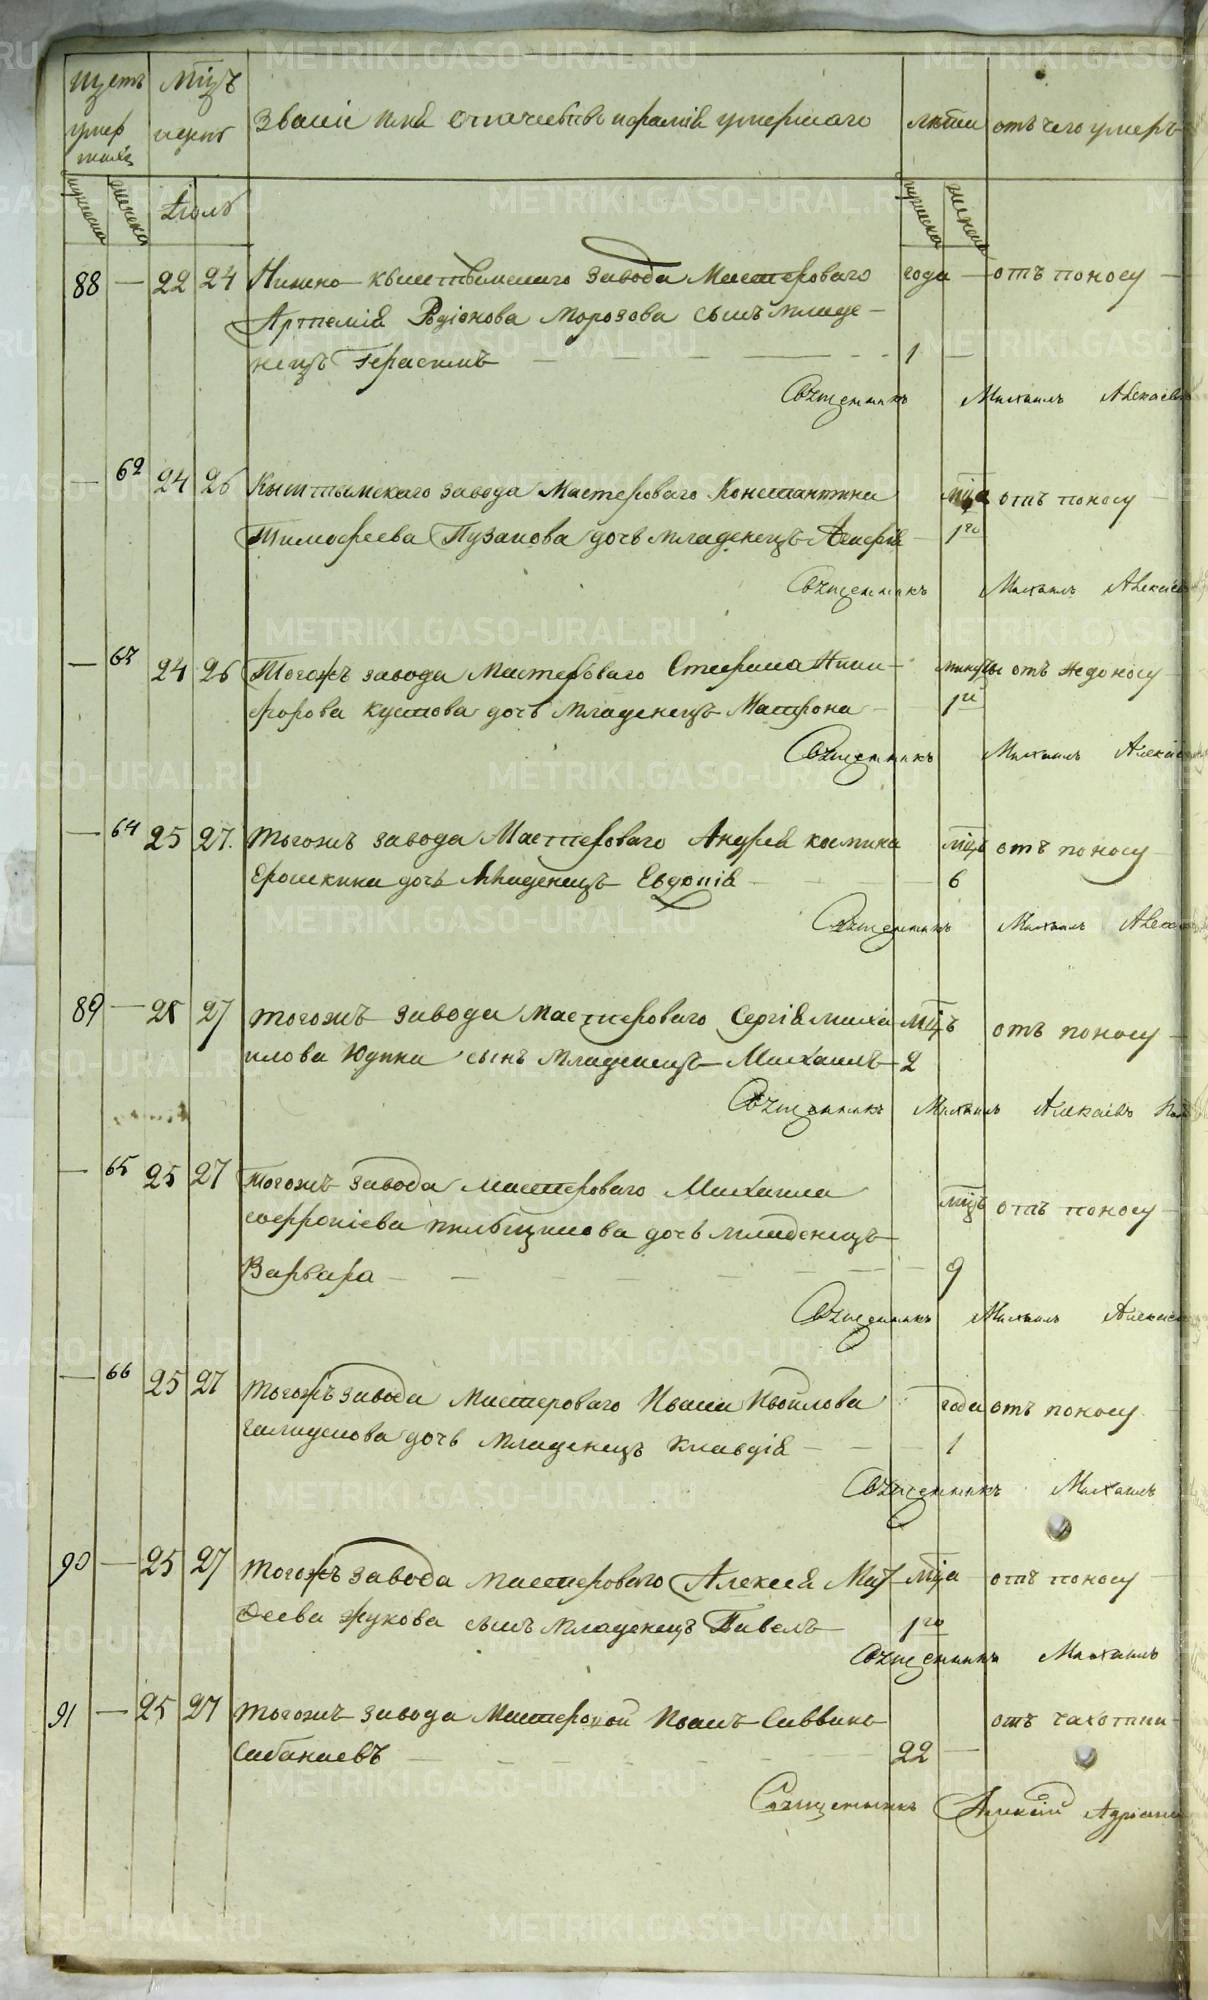 щетъ умер шихъ
мужеска женска
мѣцъ и день
Іюль
Званіе имя отечество и фамилія умершаго
лѣты
мужеска женска
отъ чего умеръ
88 — 22 24 Нижно-Кыштымскаго завода Мастероваго года — отъ поносу —
Артемія Родіонова Морозова сынъ младе-
нецъ Герасимъ — 1 —
Священникъ Михаилъ Алексіевъ
— 62 24 26 Кыштымскаго завода Мастероваго Константина мца отъ поносу —
Тимофеева Пузанова дочь младенецъ Агафія — 1го
Священникъ Михаилъ Алексіевъ
— 63 24 26 Тогожъ завода Мастероваго Стефана Ники- минуты отъ недоносу —
форова Кустова дочь младенецъ Матрона — 1й
Священникъ Михаилъ Алексіевъ
— 64 25 27. Тогожъ завода Мастероваго Андрея Космина мцъ отъ поносу —
Ерошкина дочь младенецъ Евдокія — 6
Священникъ Михаилъ
89 — 25 27 Тогожъ завода Мастероваго Сергія Миха мцъ отъ поносу —
илова Юдина сынъ младенецъ Михаилъ — 2
Священникъ Михаилъ Алексіевъ
— 65 25 27 Тогожъ завода Мастероваго Михаила мцъ отъ поносу —
Софроніева Пильщикова дочь младенецъ
Варвара — 9
Священникъ Михаилъ
— 66 25 27 Тогожъ завода Мастероваго Ивана Ивойлова года отъ поносу —
Галаденова дочь младенецъ Клавдія — 1
Священникъ Михаилъ
90 — 25 27 Тогожъ завода Мастероваго Алексея Мат- мца — отъ поносу —
ѳеева Жукова сынъ младенецъ Павелъ — 1го
Священникъ Михаилъ
91 — 25 27 Тогожъ завода Мастеровой Иванъ Саввинъ отъ чахотки —
Сабанаевъ — 22 —
Священникъ Алексій
METRIKI.GASO-URAL.RU